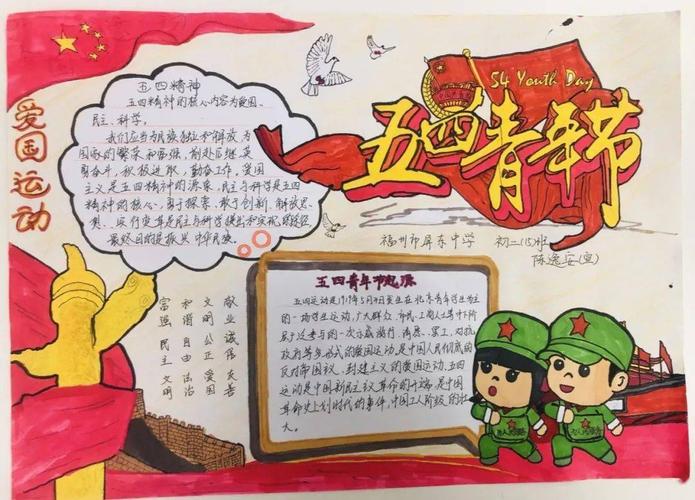 54 Youth Day
五四青年节
爱国运动
福州市屏东中学 初二(15)班
五四精神
五四精神的核心内容为爱国、
民主、科学。
我们应当为民族独立和解放为
国家的繁荣和富强,前赴后继,英
勇奋斗,积极进取,勤奋工作,爱国
主义是五四精神的源泉,民主与科学是五四
精神的核心,勇于探索、敢于创新、解放思
想、实行变革是民主与科学提出和实现的途径
最终目的是振兴中华民族。
富强 民主 文明
和谐 自由 法治
文明 公正 爱国
敬业 诚信 友善
五四青年节起源
五四运动是1919年5月4日发生在北京青年学生为主
的一场学生运动,广大群众、市民、工商人士等中下阶
层广泛参与的一次示威游行、请愿、罢工、对抗
政府等多形式的爱国运动,是中国人民彻底的
反对帝国主义、封建主义的爱国运动。五四
运动是中国新民主主义革命的开端,是中国
革命史上划时代的事件,中国工人阶级的壮
大。